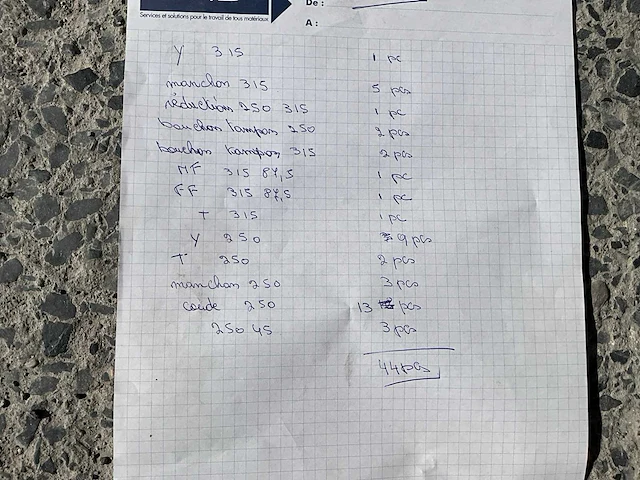 De :
Services et solutions pour le travail de tous matériaux
A :
Y 315 1 pc
manchon 315 5 pcs
réduction 250 315 1 pc
bouchon tampon 250 2 pcs
bouchon tampon 315 2 pcs
MF 315 87,5 1 pc
FF 315 87,5 1 pc
T 315 1 pc
Y 250 9 pcs
T 250 2 pcs
manchon 250 3 pcs
coude 250 13 pcs
250 45 3 pcs
44 pcs